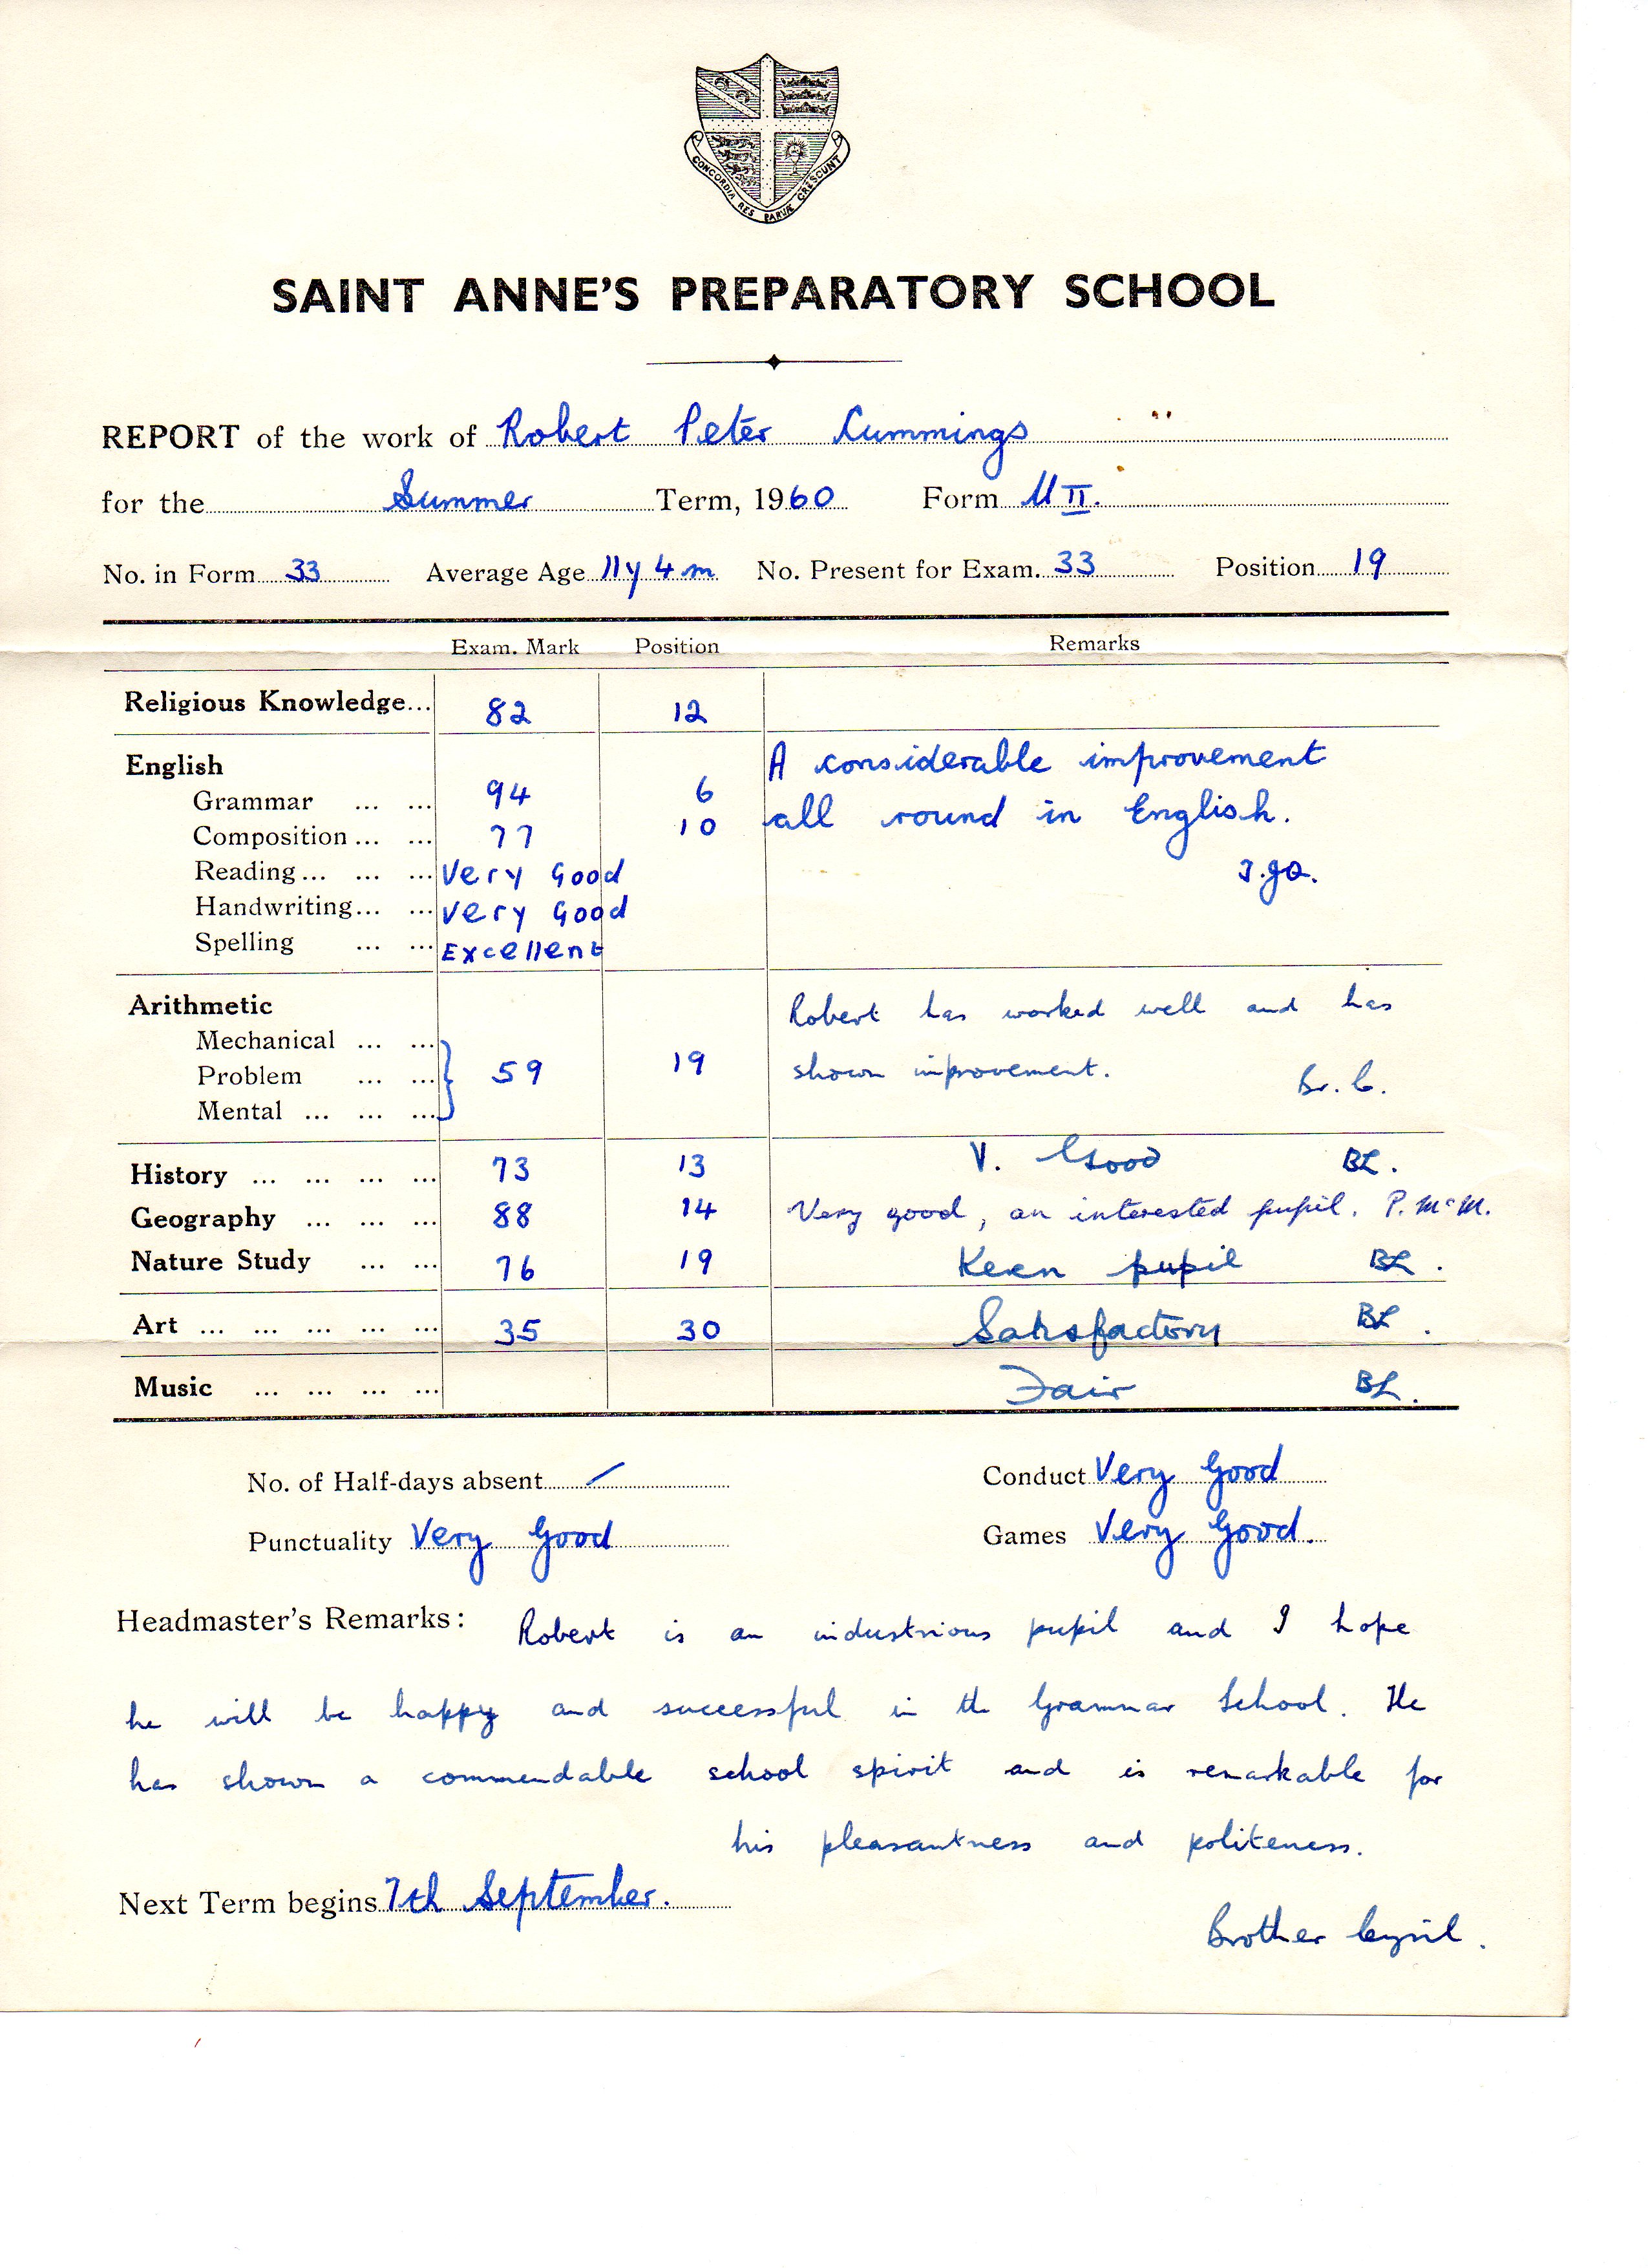 CONCORDIA RES PARVÆ CRESCUNT
SAINT ANNE'S PREPARATORY SCHOOL
REPORT of the work of Robert Peter Cummings
for the Summer Term, 1960 Form U II.
No. in Form 33 Average Age 11y 4m No. Present for Exam. 33 Position 19
Exam. Mark Position Remarks
Religious Knowledge... 82 12
English A considerable improvement
Grammar ... ... 94 6
all round in English.
Composition ... ... 77 10
Reading ... ... ... Very Good
Handwriting... ... Very Good
Spelling ... ... Excellent
Arithmetic Robert has worked well and has
Mechanical ... ...
Problem ... ... 59 19 shown improvement. Br. C.
Mental ... ... ...
History ... ... ... ... 73 13 V. Good BL.
Geography ... ... ... 88 14 Very good, an interested pupil. P. McM.
Nature Study ... ... 76 19 Keen pupil BL.
Art ... ... ... ... ... 35 30 Satisfactory BL.
Music ... ... ... ... Fair BL.
No. of Half-days absent / Conduct Very Good
Punctuality Very Good Games Very Good.
Headmaster's Remarks: Robert is an industrious pupil and I hope
he will be happy and successful in the Grammar School. He
has shown a commendable school spirit and is remarkable for
his pleasantness and politeness.
Next Term begins 7th September.
Brother Cyril.